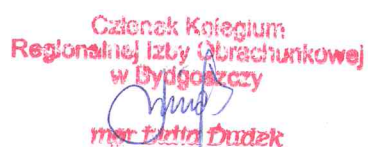 Członek Kolegium
Regionalnej Izby Obrachunkowej
w Bydgoszczy
mgr Lidia Dudek